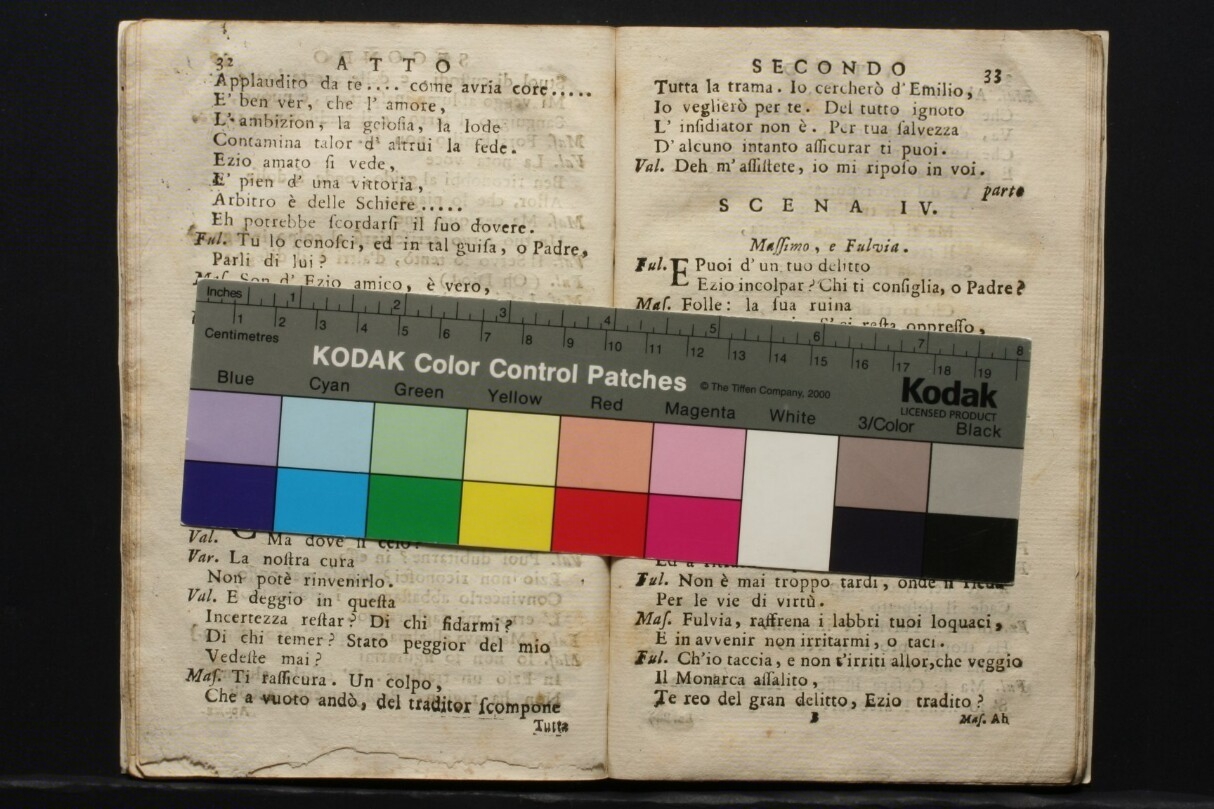 32 ATTO
Applaudito da te.... come avria core.....
E' ben ver, che l' amore,
L' ambizion, la gelosia, la lode
Contamina talor d' altrui la fede.
Ezio amato si vede,
E' pien d' una vittoria,
Arbitro è delle Schiere.....
Eh potrebbe scordarsi il suo dovere.
Ful. Tu lo conosci, ed in tal guisa, o Padre,
Parli di lui?
Mas. Son d' Ezio amico, è vero,
Val. Ma dove si celò?
Var. La nostra cura
Non potè rinvenirlo.
Val. E deggio in questa
Incertezza restar? Di chi fidarmi?
Di chi temer? Stato peggior del mio
Vedeste mai?
Mas. Ti rassicura. Un colpo,
Che a vuoto andò, del traditor scompone
Tutta
SECONDO 33
Tutta la trama. Io cercherò d'Emilio,
Io veglierò per te. Del tutto ignoto
L' insidiator non è. Per tua salvezza
D'alcuno intanto assicurar ti puoi.
Val. Deh m'assistete, io mi riposo in voi.
parte
SCENA IV.
Massimo, e Fulvia.
Ful. E Puoi d'un tuo delitto
Ezio incolpar? Chi ti consiglia, o Padre?
Mas. Folle: la sua ruina
resta oppresso,
Ful. Non è mai troppo tardi, onde si rieda
Per le vie di virtù.
Mas. Fulvia, raffrena i labbri tuoi loquaci,
E in avvenir non irritarmi, o taci.
Ful. Ch'io taccia, e non t'irriti allor,che veggio
Il Monarca assalito,
Te reo del gran delitto, Ezio tradito?
B Mas. Ah
Inches 1 2 3 4 5 6 7 8
1 2 3 4 5 6 7 8 9 10 11 12 13 14 15 16 17 18 19
Centimetres
KODAK Color Control Patches © The Tiffen Company, 2000 Kodak
LICENSED PRODUCT
Blue Cyan Green Yellow Red Magenta White 3/Color Black